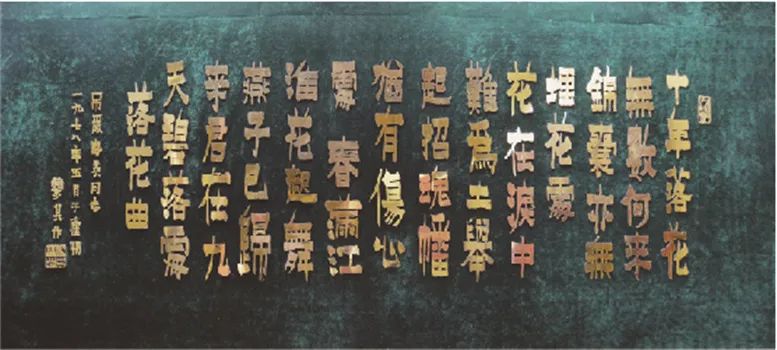 十年落花
無數何來
錦囊亦無
埋花處
花在淚中
難為土舉
起招魂幡
猶有傷心
處 春滿江
海花起舞
燕子已歸
來君在九
天碧落處
落花曲
吊嚴鳳英同志
一九七八年五月于